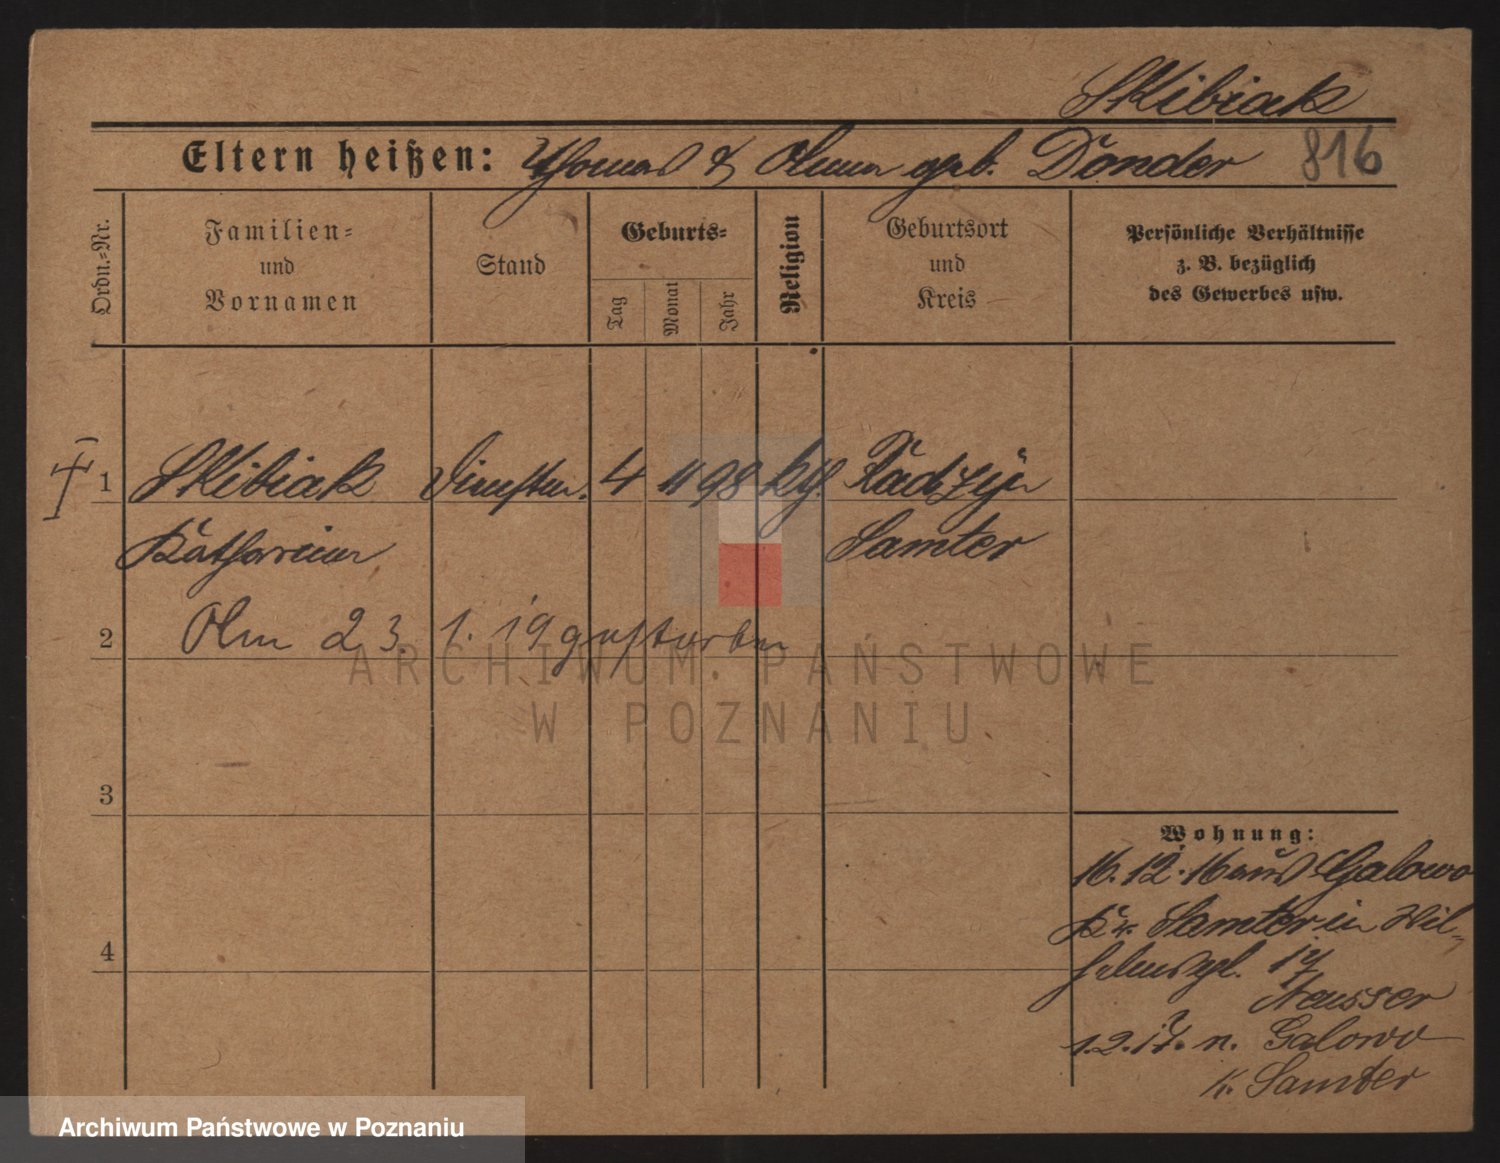 Skibiak
Eltern heißen: Thomas & Anna geb. Donder 816
Ordn.-Nr.
Familien-
und
Vornamen
Stand
Geburts-
Tag
Monat
Jahr
Religion
Geburtsort
und
Kreis
Persönliche Verhältnisse
z. B. bezüglich
des Gewerbes usw.
1 Skibiak 4 11 98 kth. Radzyn
Katharina Samter
2 Am 23. 1. 19 gestorben
3
4
Wohnung:
16.12.16 aus Galowo
Kr. Samter in Wil-
helmspl. 17
1.2.17. n. Galowo
K. Samter
ARCHIWUM PAŃSTWOWE
W POZNANIU
Archiwum Państwowe w Poznaniu